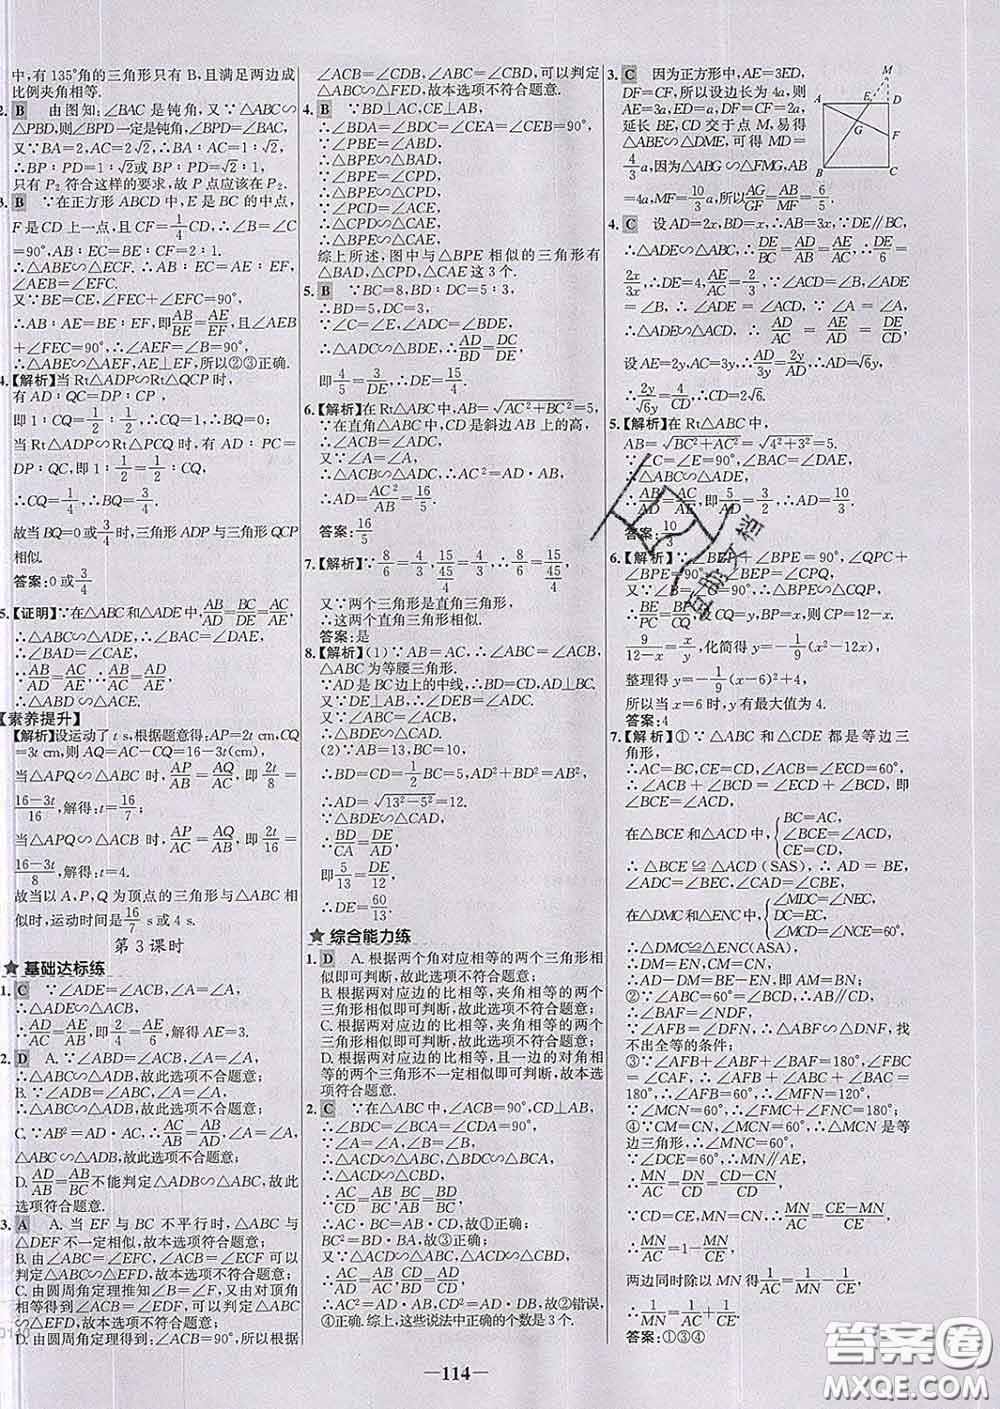 中,有135°角的三角形只有 B,且满足两边成
比例夹角相等.
2. B 由图知,∠BAC 是钝角,又∵△ABC∽
△PBD,则∠BPD一定是钝角,∠BPD=∠BAC,
又∵BA=2,AC=2√2,∴BA∶AC=1∶√2,
∴BP∶PD=1∶√2或 BP∶PD=√2∶1,
只有 P₂ 符合这样的要求,故 P 点应该在 P₂.
3. B ∵在正方形 ABCD 中,E 是 BC 的中点,
F 是 CD 上一点,且 CF=1/4 CD,∴∠B=∠C
=90°,AB∶EC=BE∶CF=2∶1.
∴△ABE∽△ECF. ∴AB∶EC=AE∶EF,
∠AEB=∠EFC.
又∵BE=CE,∠FEC+∠EFC=90°,
∴AB∶AE=BE∶EF,即AB/BE=AE/EF,且∠AEB
+∠FEC=90°,∴∠AEF=∠B=90°.
∴△ABE∽△AEF,AE⊥EF,所以②③正确.
4.【解析】当 Rt△ADP∽Rt△QCP 时,
有 AD∶QC=DP∶CP,
即 1∶CQ=1/2∶1/2,∴CQ=1,∴BQ=0;
当 Rt△ADP∽Rt△PCQ 时,有 AD∶PC=
DP∶QC,即 1∶1/2=1/2∶CQ,
∴CQ=1/4,∴BQ=3/4.
故当 BQ=0或3/4时,三角形 ADP 与三角形 QCP
相似.
答案:0或3/4
5.【证明】∵在△ABC 和△ADE 中,AB/AD=BC/DE=AC/AE,
∴△ABC∽△ADE,∴∠BAC=∠DAE,
∴∠BAD=∠CAE,
∵AB/AD=AC/AE,∴AB/AC=AD/AE,
∴△ABD∽△ACE.
【素养提升】
【解析】设运动了 t s,根据题意得:AP=2t cm,CQ
=3t cm,则 AQ=AC-CQ=16-3t(cm),
当△APQ∽△ABC 时,AP/AB=AQ/AC,即2t/8=
(16-3t)/16,解得:t=16/7;
当△APQ∽△ACB 时,AP/AC=AQ/AB,即2t/16=
(16-3t)/8,解得:t=4.
故当以 A,P,Q 为顶点的三角形与△ABC 相
似时,运动时间是16/7 s或4 s.
第 3 课时
★ 基础达标练
1. C ∵∠ADE=∠ACB,∠A=∠A,
∴△ADE∽△ACB,
∴AD/AC=AE/AB,即2/4=AE/6,解得 AE=3.
2. D A.∵∠ABD=∠ACB,∠A=∠A,
∴△ABC∽△ADB,故此选项不合题意;
B.∵∠ADB=∠ABC,∠A=∠A,
∴△ABC∽△ADB,故此选项不合题意;
C.∵AB²=AD·AC,∴AC/AB=AB/AD,∠A=∠A,
∴△ABC∽△ADB,故此选项不合题意;
D.AD/AB=AB/BC不能判定△ADB∽△ABC,故此
选项符合题意.
3. A A.当 EF 与 BC 不平行时,△ABC 与
△DEF 不一定相似,故本选项符合题意;
B.由∠ABC=∠EFC,∠ACB=∠ECF 可以
判定△ABC∽△EFD,故本选项不符合题意;
C.由圆周角定理推知∠B=∠F,又由对顶角
相等得到∠ACB=∠EDF,可以判定△ABC
∽△EFD,故本选项不符合题意;
D.由圆周角定理得到:∠ACB=90°,所以根据
∠ACB=∠CDB,∠ABC=∠CBD,可以判定
△ABC∽△FED,故本选项不符合题意.
4. B ∵BD⊥AC,CE⊥AB,
∴∠BDA=∠BDC=∠CEA=∠CEB=90°,
∴∠PBE=∠ABD,
∴△BPE∽△BAD,
∵∠BPE=∠CPD,
∴△BPE∽△CPD,
又∵∠PCD=∠ACE,
∴△CPD∽△CAE,
∴△BPE∽△CAE,
综上所述,图中与△BPE 相似的三角形有
△BAD,△CPD,△CAE 这 3 个.
5. B ∵BC=8,BD∶DC=5∶3,
∴BD=5,DC=3,
∵∠C=∠E,∠ADC=∠BDE,
∴△ACD∽△BED,∴AD/BD=DC/DE,
即4/5=3/DE,∴DE=15/4.
6.【解析】在 Rt△ABC 中,AB=√(AC²+BC²)=5,
∵在直角△ABC 中,CD 是斜边 AB 上的高,
又∵∠A=∠A,
∴△ACB∽△ADC,∴AC²=AD·AB,
∴AD=AC²/AB=16/5.
答案:16/5
7.【解析】∵8/6=4/3,(15/4)/(45/4)... 
又∵两个三角形是直角三角形,
∴这两个直角三角形相似.
答案:是
8.【解析】(1)∵AB=AC,∴∠B=∠ACB,
△ABC 为等腰三角形.
∵AD 是 BC 边上的中线,∴BD=CD,AD⊥BC.
又∵DE⊥AB,∴∠DEB=∠ADC,
∴△BDE∽△CAD.
(2)∵AB=13,BC=10,
∴BD=CD=1/2 BC=5,
∴AD=√(13²-5²)=12.
∵△BDE∽△CAD,
∴BD/CA=DE/AD,
即5/13=DE/12,
∴DE=60/13.
★ 综合能力练
1. D A.根据两个角对应相等的两个三角形相
似即可判断,故此选项不符合题意;
B.根据两对应边的比相等,夹角相等的两个三
角形相似即可判断,故此选项不符合题意;
C.根据两对应边的比相等,夹角相等的两个三
角形相似即可判断,故此选项不符合题意;
D.根据两对应边的比相等,且一边的对角相
等的两个三角形不一定相似即可判断,故此
选项符合题意.
2. C ∵在△ABC 中,∠ACB=90°,CD⊥AB,
∴∠BDC=∠BCA=∠CDA=90°,
∵∠A=∠A,∠B=∠B,
∴△ACD∽△ABC,△BDC∽△BCA,
∴AC/CD=AB/BC,BC/BD=BD/BC,
∴AC·BC=AB·CD,故①正确;
BC²=BD·BA,故③正确;
又∵△ACD∽△ABC,△ACD∽△CBD,
∴AC/AD=AB/AC,AC/CD=BC/BD,
∴AC²=AD·AB,AC·BD=BC·CD,故②错误,
④正确.综上,这些说法中正确的个数是 3 个.
3. C 因为正方形中,AE=3ED,
DF=CF,所以设边长为 4a,则
AE=3a,ED=a,DF=CF=2a,
延长 BE,CD 交于点 M,易得
△ABE∽△DME,可得 MD=
4/3 a,因为△ABG∽△FMG,AB=
4a,MF=10/3 a,所以AG/GF=AB/MF=6/5.
M A E D G F B C
4. C 设 AD=2x,BD=x,∴AB=3x,∵DE∥BC,
∴△ADE∽△ABC,∴DE/BC=AD/AB=AE/AC,∴DE/6=
2x/3x,∴DE=4,AE/AC=2/3,∵∠ACD=∠B,∠ADE
=∠B,∴∠ADE=∠ACD,∵∠A=∠A,
∴△ADE∽△ACD,∴AD/AC=AE/AD=DE/CD,
设 AE=2y,AC=3y,∴AD/3y=2y/AD,∴AD=√6y,
∴2y/√6y=4/CD,∴CD=2√6.
5.【解析】在 Rt△ABC 中,
AB=√(BC²+AC²)=√(4²+3²)=5.
∵∠C=∠E=90°,∠BAC=∠DAE,
∴△ABC∽△ADE,
∴AB/AD=AC/AE,即5/AD=3/2,∴AD=10/3.
答案:10/3
6.【解析】∵∠BEP+∠BPE=90°,∠QPC+
∠BPE=90°,∴∠BEP=∠CPQ,
又∵∠B=∠C=90°,∴△BPE∽△CQP,
∴BE/PC=BP/CQ,设 CQ=y,BP=x,则 CP=12-x,
9/(12-x)=x/y,化简得 y=-1/9(x²-12x),
整理得 y=-1/9(x-6)²+4,
所以当 x=6 时,y 有最大值为 4.
答案:4
7.【解析】①∵△ABC 和△CDE 都是等边三
角形,
∴AC=BC,CE=CD,∠ACB=∠ECD=60°,
∴∠ACB+∠BCD=∠ECD+∠BCD,即
∠BCE=∠ACD,
在△BCE 和△ACD 中,{BC=AC,
∠BCE=∠ACD,
CE=CD,
∴△BCE≌△ACD(SAS),∴AD=BE,
∠ADC=∠BEC,∠CAD=∠CBE,
在△DMC 和△ENC 中,{∠MDC=∠NEC,
DC=EC,
∠MCD=∠NCE=60°,
∴△DMC≌△ENC(ASA),
∴DM=EN,CM=CN,
∴AD-DM=BE-EN,即 AM=BN;
②∵∠ABC=60°=∠BCD,∴AB∥CD,
∴∠BAF=∠NDF,
∵∠AFB=∠DFN,∴△ABF∽△DNF,找
不出全等的条件;
③∵∠AFB+∠ABF+∠BAF=180°,∠FBC
=∠CAF,∴∠AFB+∠ABC+∠BAC=
180°,∴∠AFB=60°,∴∠MFN=120°,
∵∠MCN=60°,∴∠FMC+∠FNC=180°;
④∵CM=CN,∠MCN=60°,∴△MCN 是等
边三角形,∴∠MNC=60°,
∵∠DCE=60°,∴MN∥AE,
∴MN/AC=DN/CD=(CD-CN)/CD,
∵CD=CE,MN=CN,∴MN/AC=(CE-MN)/CE,
∴MN/AC=1-MN/CE,
两边同时除以 MN 得1/AC=1/MN-1/CE,
∴1/MN=1/AC+1/CE.
答案:①③④
—114—
答案圈
MXQE.COM